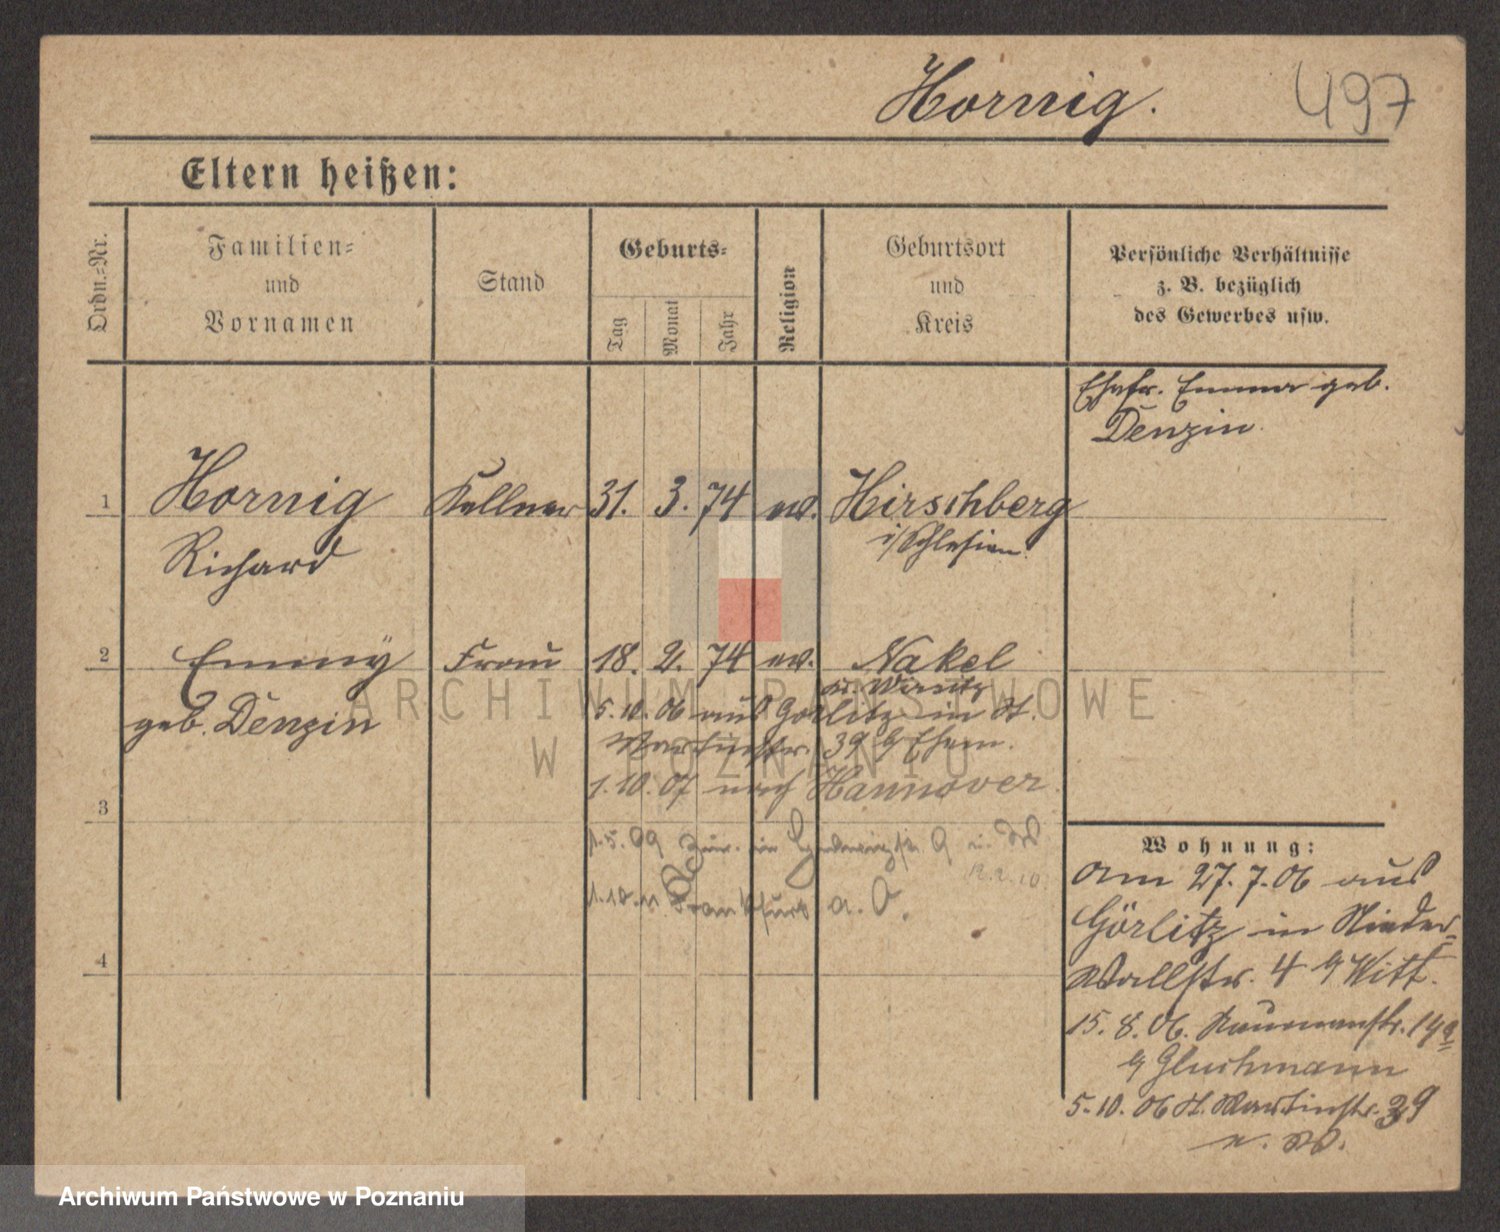 Hornig.
497
Eltern heißen:
Ordn.-Nr.
Familien-
und
Vornamen
Stand
Geburts-
Tag
Monat
Jahr
Religion
Geburtsort
und
Kreis
Persönliche Verhältnisse
z. B. bezüglich
des Gewerbes usw.
Ehefr. Emma geb.
Denzin.
1
Hornig
Kellner
31. 3. 74
ev.
Hirschberg
Richard
i/Schlesien.
2
Emmy
Frau
18. 2. 74
ev.
Nakel
Kr. Wirsitz
geb. Denzin
5.10.06 aus Görlitz in St.
Martinstr. 39
1.10.07 nach Hannover.
3
1.5.09 in Ludwigstr. 9
12.2.10.
1.10.11 Frankfurt a. O.
4
Wohnung:
Am 27.7.06 aus
Görlitz in Nieder-
Wallstr. 4 Witt.
15.8.06. Naumannstr.
Gluchmann
5.10.06 St. Martinstr. 39
ARCHIWUM PAŃSTWOWE
W POZNANIU
Archiwum Państwowe w Poznaniu